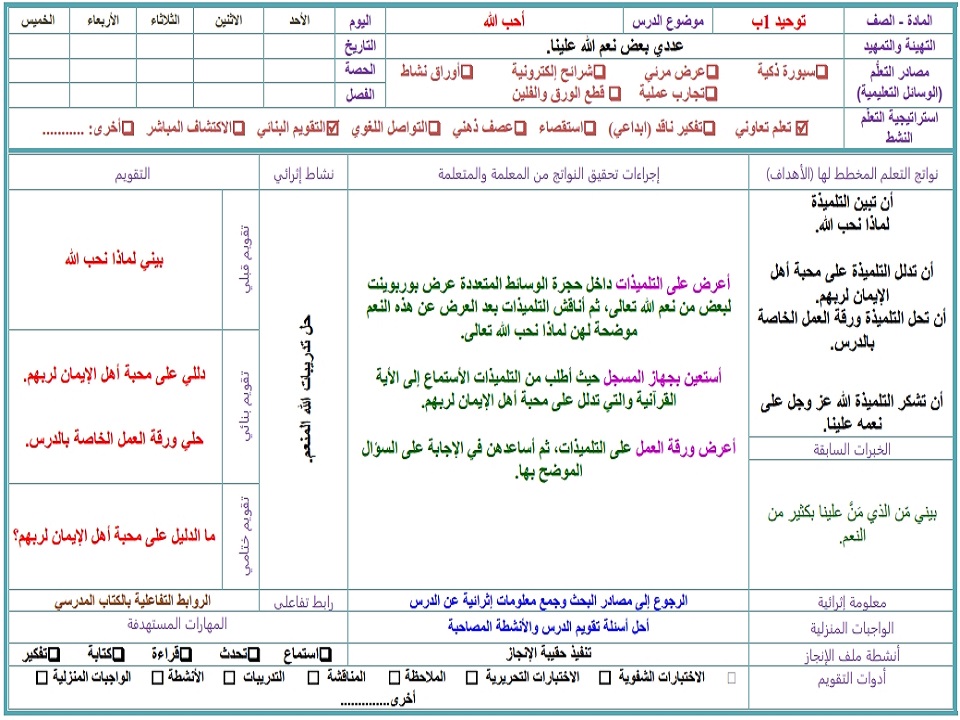 المادة - الصف توحيد 1ب موضوع الدرس أحب الله اليوم الأحد الاثنين الثلاثاء الأربعاء الخميس
التهيئة والتمهيد عددي بعض نعم الله علينا. التاريخ
مصادر التعلُّم ❑سبورة ذكية ❑عرض مرئي ❑شرائح إلكترونية ❑أوراق نشاط الحصة
(الوسائل التعليمية) ❑تجارب عملية ❑ قطع الورق والفلين الفصل
استراتيجية التعلم ☑ تعلم تعاوني ❑تفكير ناقد (ابداعي) ❑استقصاء ❑عصف ذهني ❑التواصل اللغوي ☑التقويم البنائي ❑الاكتشاف المباشر ❑أخرى: ...........
النشط
نواتج التعلم المخطط لها (الأهداف) إجراءات تحقيق النواتج من المعلمة والمتعلمة نشاط إثرائي التقويم
أن تبين التلميذة
لماذا نحب الله.
أن تدلل التلميذة على محبة أهل
الإيمان لربهم.
أن تحل التلميذة ورقة العمل الخاصة
بالدرس.
أن تشكر التلميذة الله عز وجل على
نعمه علينا.
الخبرات السابقة
بيني مّن الذي مَنَّ علينا بكثير من
النعم.
أعرض على التلميذات داخل حجرة الوسائط المتعددة عرض بوربوينت
لبعض من نعم الله تعالى، ثم أناقش التلميذات بعد العرض عن هذه النعم
موضحة لهن لماذا نحب الله تعالى.
أستعين بجهاز المسجل حيث أطلب من التلميذات الأستماع إلى الأية
القرآنية والتي تدلل على محبة أهل الإيمان لربهم.
أعرض ورقة العمل على التلميذات، ثم أساعدهن في الإجابة على السؤال
الموضح بها.
حل تدريبات الله المنعم.
تقويم قبلي
بيني لماذا نحب الله
تقويم بنائي
دللي على محبة أهل الإيمان لربهم.
حلي ورقة العمل الخاصة بالدرس.
تقويم ختامي
ما الدليل على محبة أهل الإيمان لربهم؟
معلومة إثرائية الرجوع إلى مصادر البحث وجمع معلومات إثرائية عن الدرس رابط تفاعلي الروابط التفاعلية بالكتاب المدرسي
الواجبات المنزلية أحل أسئلة تقويم الدرس والأنشطة المصاحبة المهارات المستهدفة
أنشطة ملف الإنجاز تنفيذ حقيبة الإنجاز ❑استماع ❑تحدث ❑قراءة ❑كتابة ❑تفكير
أدوات التقويم □ الاختبارات الشفوية □ الاختبارات التحريرية □ الملاحظة □ المناقشة □ التدريبات □ الأنشطة □ الواجبات المنزلية □
أخرى..............